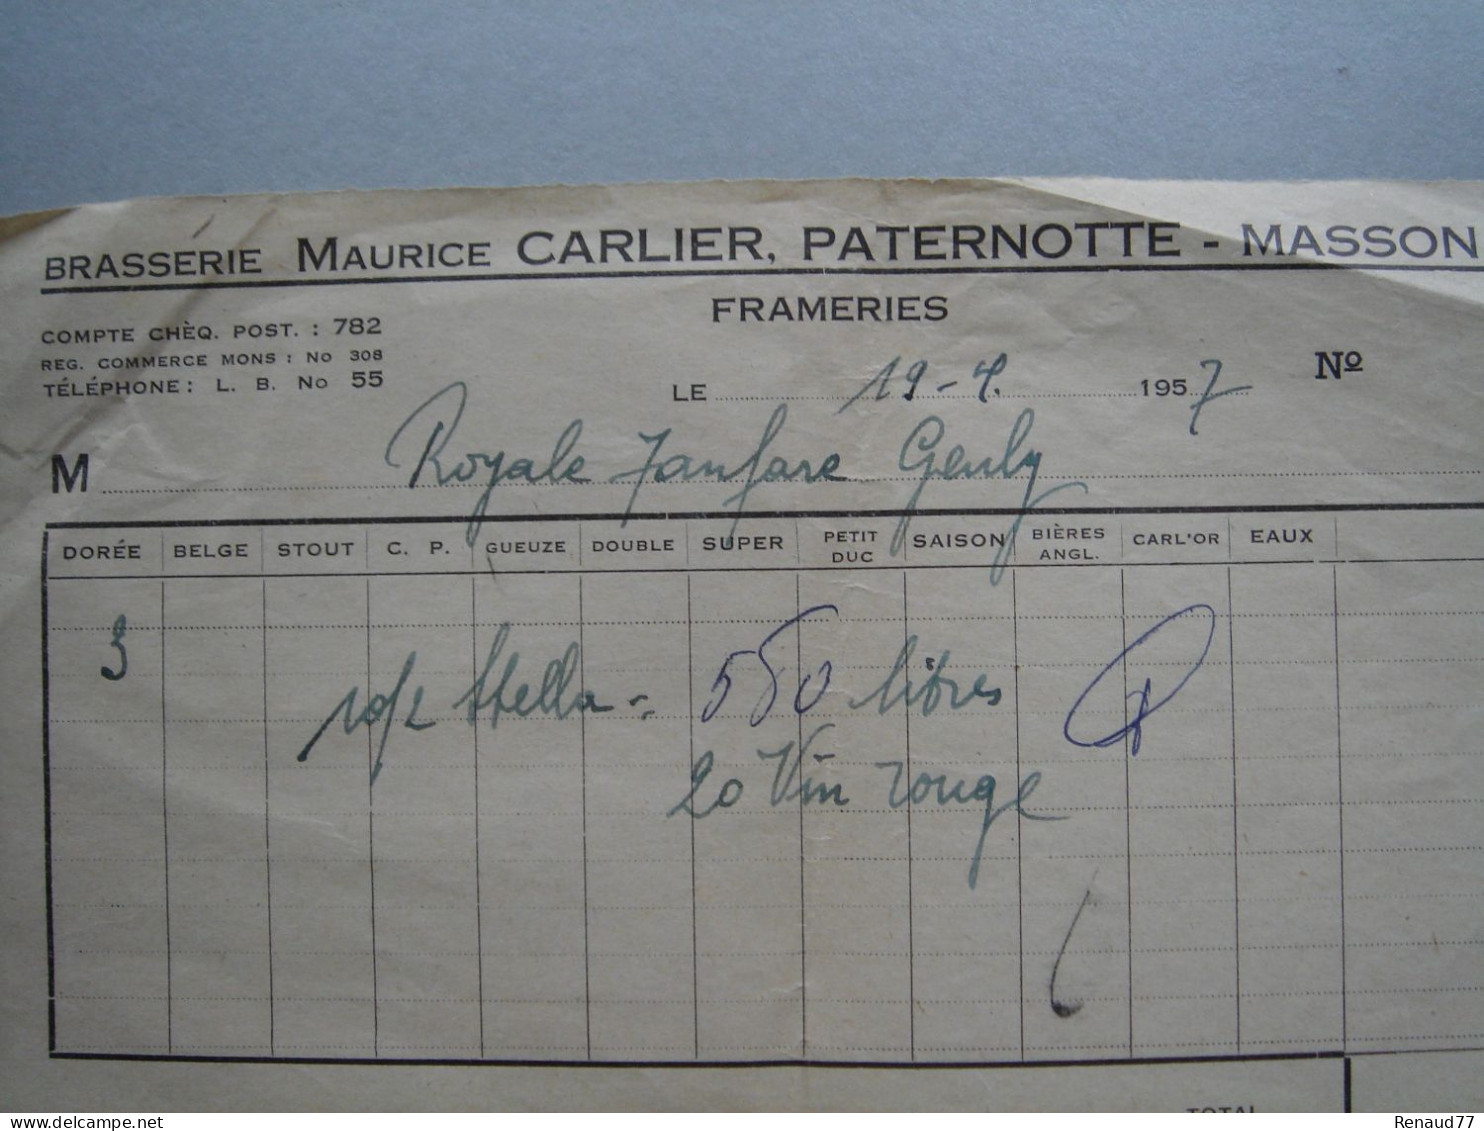 BRASSERIE MAURICE CARLIER, PATERNOTTE - MASSON
FRAMERIES
COMPTE CHÈQ. POST. : 782
REG. COMMERCE MONS : No 308
TÉLÉPHONE : L. B. No 55
LE 19-4. 1957 Nº
M Royale Fanfare Genly
DORÉE BELGE STOUT C. P. GUEUZE DOUBLE SUPER PETIT DUC SAISON BIÈRES ANGL. CARL'OR EAUX
3
10/2 Stella = 550 litres
20 Vin rouge
TOTAL
Renaud77